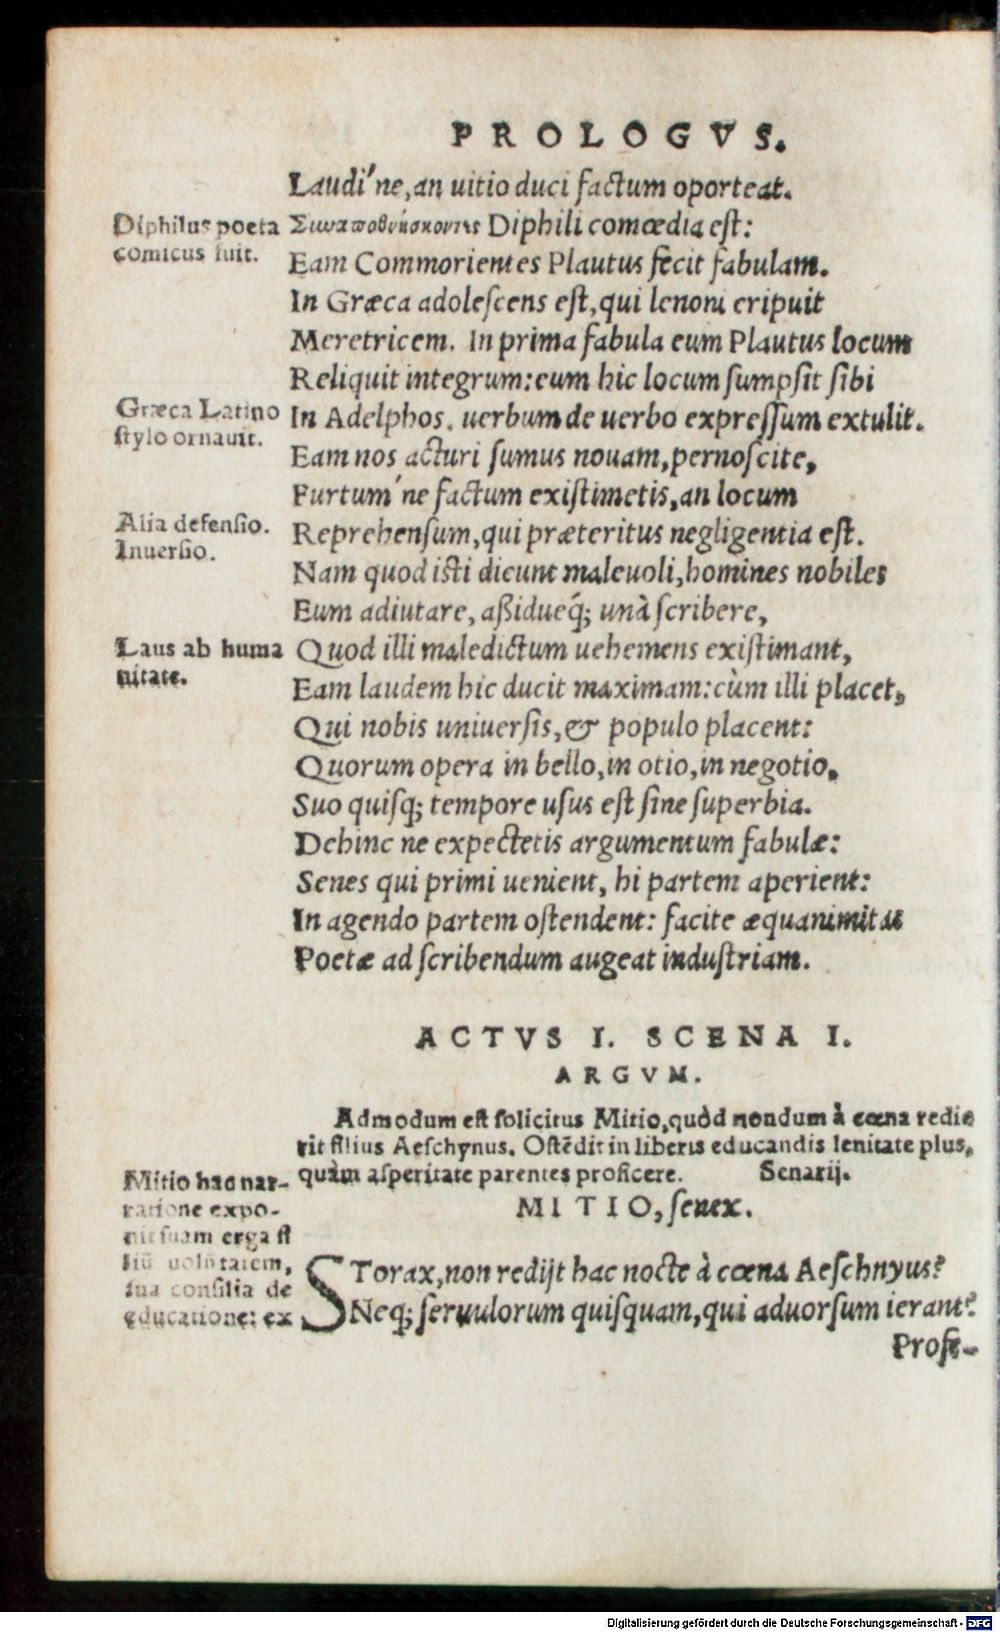 PROLOGVS.
Laudi'ne, an uitio duci factum oporteat.
Diphilus poeta
comicus fuit.
Συναποθνήσκοντες Diphili comœdia eſt:
Eam Commorientes Plautus fecit fabulam.
In Græca adoleſcens eſt, qui lenoni eripuit
Meretricem. In prima fabula eum Plautus locum
Reliquit integrum: eum hic locum ſumpſit ſibi
Græca Latino
ſtylo ornauit.
In Adelphos. uerbum de uerbo expreſſum extulit.
Eam nos acturi ſumus nouam, pernoſcite,
Furtum'ne factum exiſtimetis, an locum
Alia defenſio.
Inuerſio.
Reprehenſum, qui præteritus negligentia eſt.
Nam quod iſti dicunt maleuoli, homines nobiles
Eum adiutare, aßidueq́; unà ſcribere,
Laus ab huma
nitate.
Quod illi maledictum uehemens exiſtimant,
Eam laudem hic ducit maximam: cùm illi placet,
Qui nobis uniuerſis, & populo placent:
Quorum opera in bello, in otio, in negotio,
Suo quiſq; tempore uſus eſt ſine ſuperbia.
Dehinc ne expectetis argumentum fabulæ:
Senes qui primi uenient, hi partem aperient:
In agendo partem oſtendent: facite æquanimitas
Poetæ ad ſcribendum augeat induſtriam.
ACTVS I. SCENA I.
ARGVM.
Admodum eſt ſolicitus Mitio, quòd nondum à cœna redie
rit filius Aeſchynus. Oſtēdit in liberis educandis lenitate plus,
quàm aſperitate parentes proficere. Senarij.
MITIO, ſenex.
Mitio hac nar-
ratione expo-
nit ſuam erga fi
liū uolūtatem,
ſua conſilia de
educatione: ex
STorax, non redijt hac nocte à cœna Aeſchnyus?
Neq; ſeruulorum quiſquam, qui aduorſum ierant?
Profe-
Digitalisierung gefördert durch die Deutsche Forschungsgemeinschaft - DFG